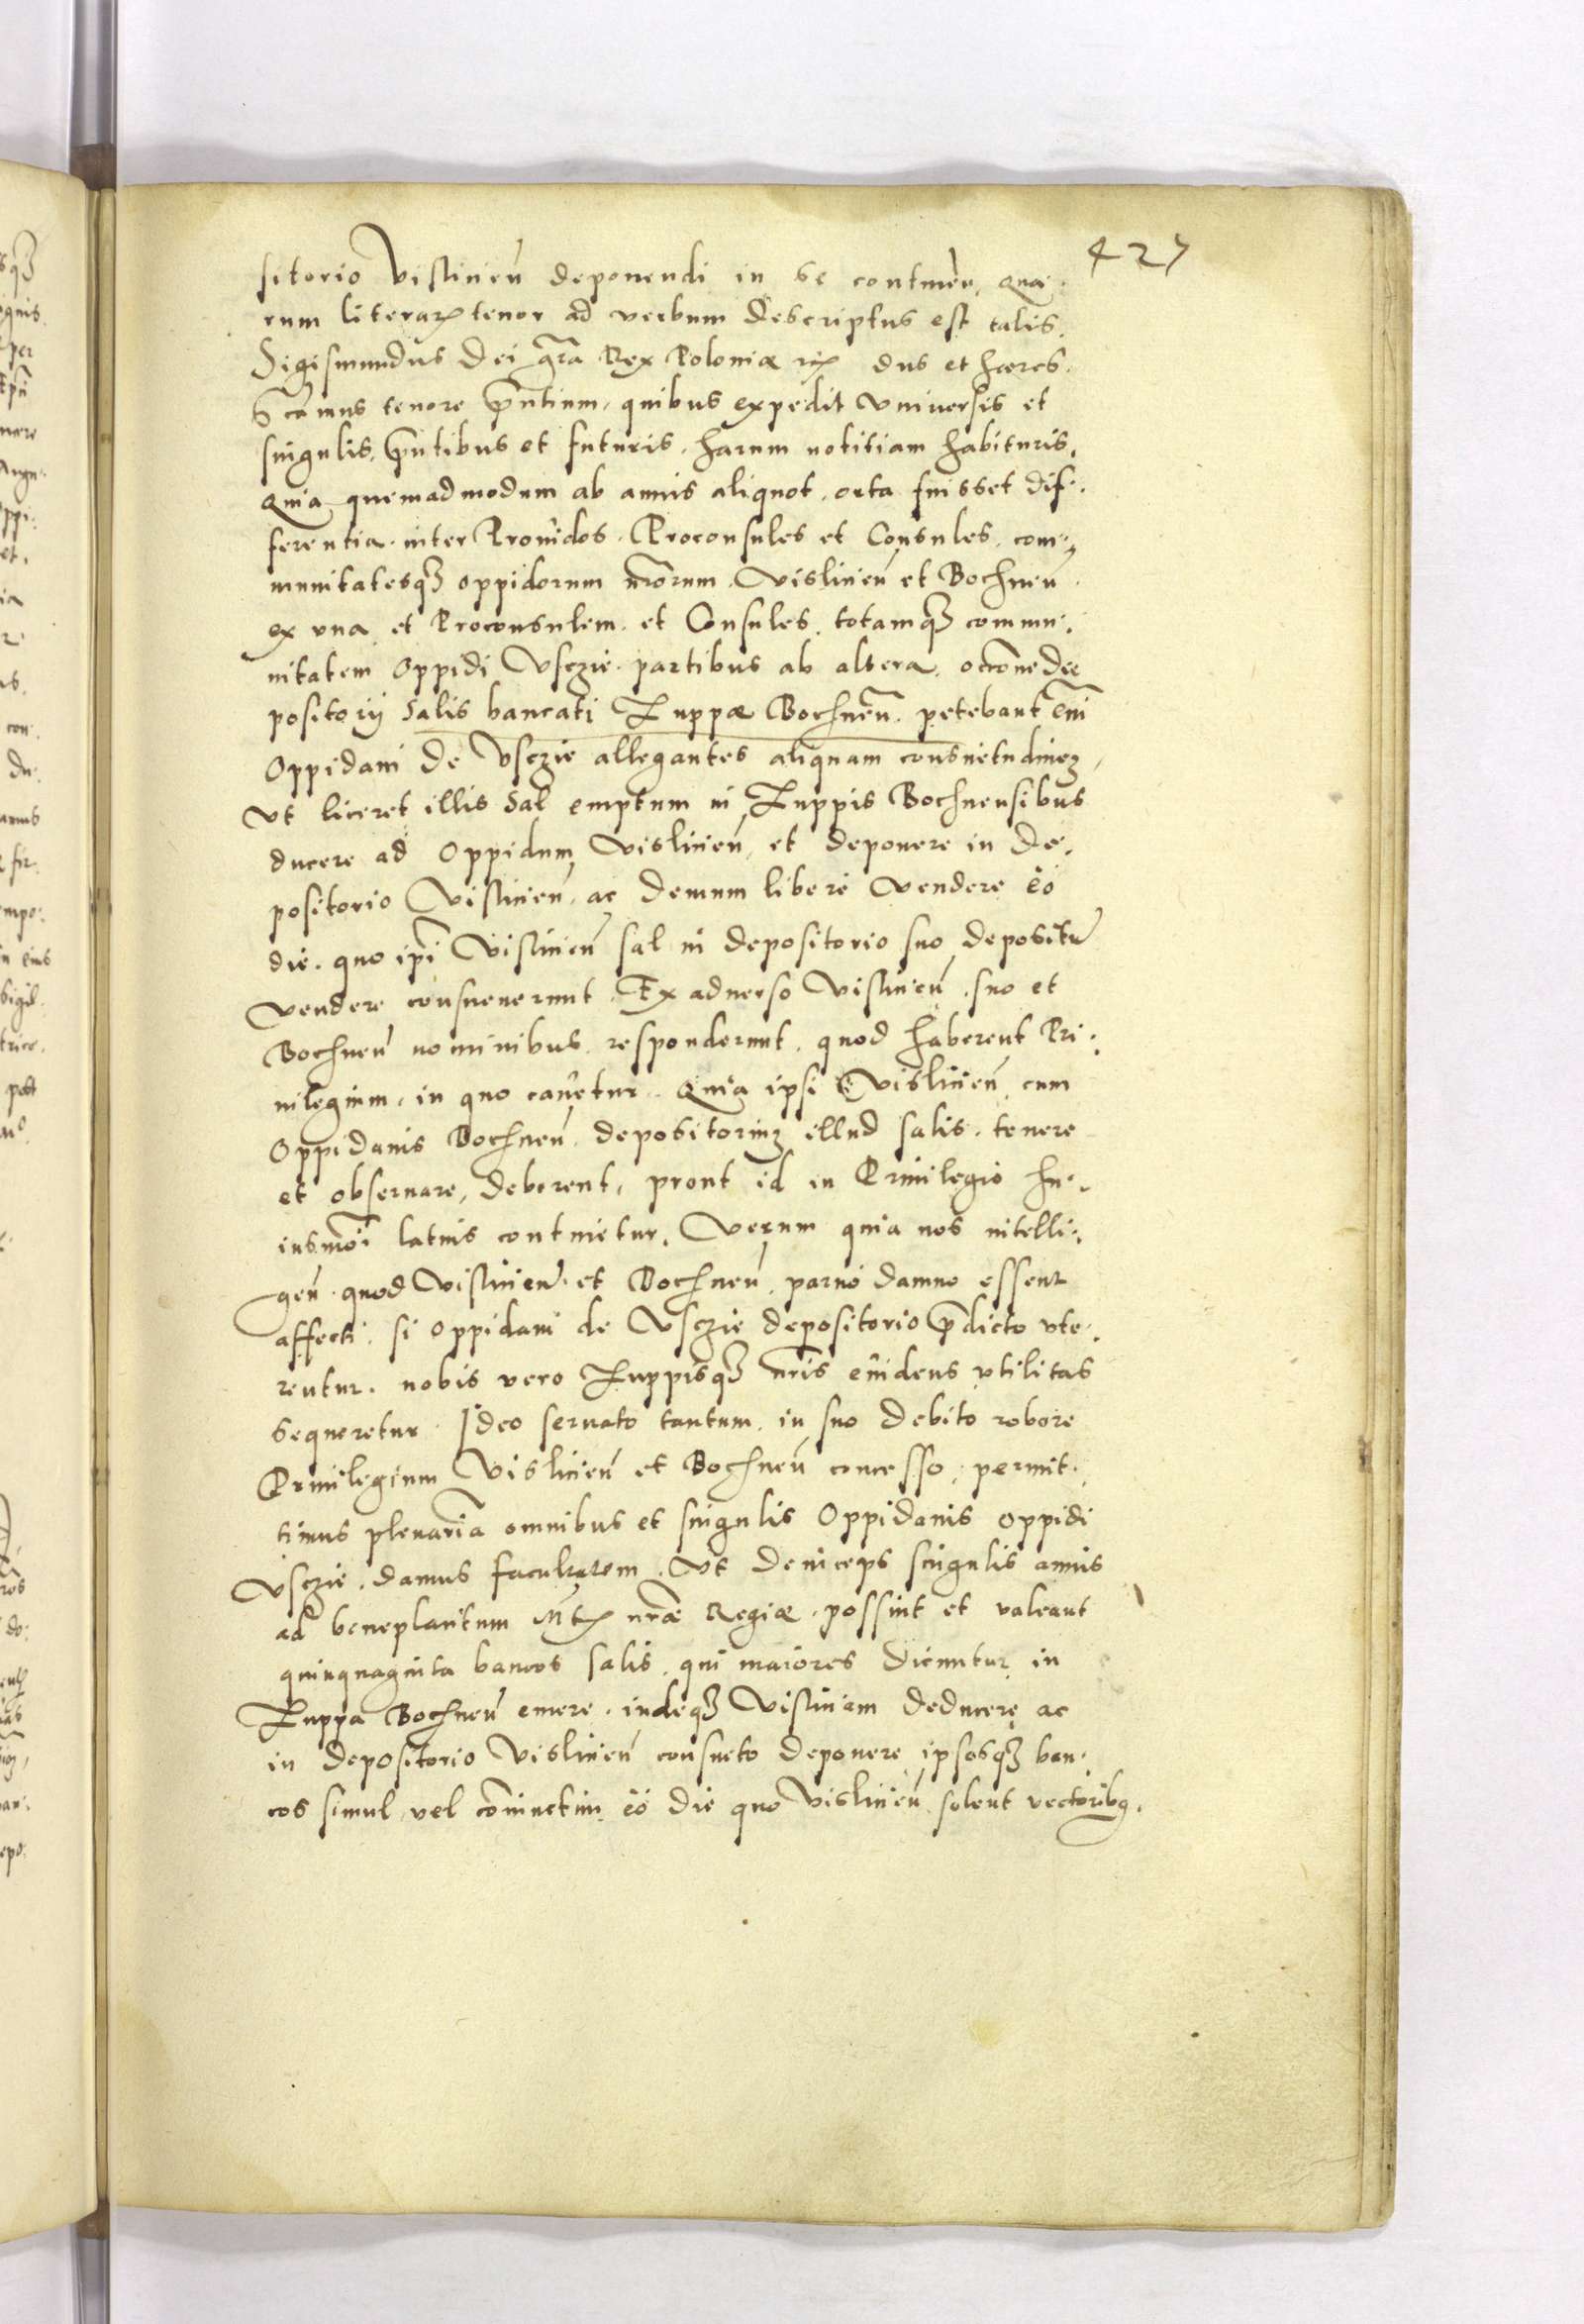 427
sitorio Vislicien̄ deponendi in se continen̄, Qua¬
rum literarꝝ tenor ad verbum descriptus est talis.
Sigismundus Dei gr̄a Rex Poloniæ etc̄ dns et hæres.
S̄camus tenore p̄ntium, quibus expedit Vniuersis et
singulis, p̄ntibus et futuris, harum notitiam habituris,
Quia quemadmodum ab annis aliquot, orta fuisset dif¬
ferentia, inter Prouidos, Proconsules et Consules, com¬
munitatesqꝫ oppidorum nr̄orum, Vislicien̄ et Bochnen̄
ex vna, et Proconsulem, et Consules, totamqꝫ commu¬
nitatem Oppidi Vsczie, partibus ab altera, occōne de
positorij Salis bancati Zuppæ Bochnen̄, petebant em̄
Oppidani de Vsczie allegantes aliquam consuetudineꝫ,
Vt liceret illis Sal emptum in Zuppis Bochnensibus
ducere ad Oppidum Vislicien̄, et deponere in De¬
positorio Vislicien̄, ac demum libere vendere eo
die, quo ip̄i Vislicien̄ sal in depositorio suo depositū
vendere consueuerunt. Ex aduerso Vislicien̄, suo et
Bochnen̄ nominibus, responderunt, quod haberent Pri¬
uilegium, in quo cauetur, Quia ipsi Vislicien̄, cum
Oppidanis Bochnen̄, depositoriuꝫ illud salis, tenere
et obseruare, deberent, prout id in Priuilegio hu¬
iusmōi latius continetur, Verum quia nos intelli¬
gen̄, quod Vislicien̄, et Bochnen̄, paruo damno essent
affecti, si oppidani de Vsczie depositorio p̄dicto vte¬
rentur, nobis vero Zuppisqꝫ nr̄is euidens vtilitas
sequeretur, Ideo seruato tantum, in suo debito robore
Priuilegium Vislicien̄ et Bochnen̄ concesso, permit¬
timus plenariā omnibus et singulis Oppidanis oppidi
Vsczie, damus facultatem, Vt deinceps singulis annis
ad beneplacitum M̄tꝭ nr̄æ Regiæ, possint et valeant
quinquaginta bancos salis, qui maiores dicuntur in
Zuppa Bochnen̄ emere, indeqꝫ Visliciam deducere ac
in depositorio Vislicien̄ consueto deponere, ipsosqꝫ ban¬
cos simul, vel cōniunctim, eo die quo Vislicien̄ solent vectoribꝯ,